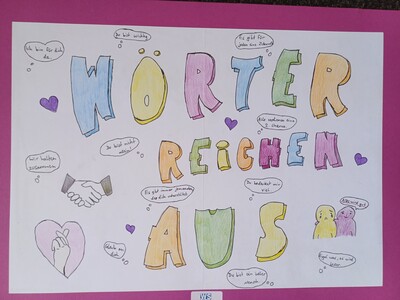 Ich bin für dich
da
Du bist wichtig
Es gibt für
jeden eine Zukunft
WÖRTER
Alle verdienen eine
2. Chance
Du bist nicht
allein!
REICHEN
Wir halten
zusammen
Es gibt immer jemanden
der dich
Du bedeutest mir
viel
AUS
Glaub an
dich
Du bist ein toller
Mensch
Egal was, es wird